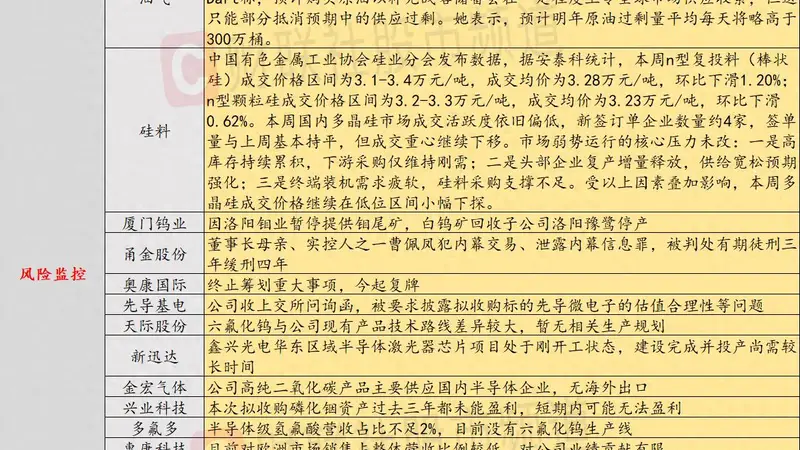 油气
Dart称，预计购买原油以补充战略储备会在一定程度上令全球市场供应收紧，但这
只能部分抵消预期中的供应过剩。她表示，预计明年原油过剩量平均每天将略高于
300万桶。
硅料
中国有色金属工业协会硅业分会发布数据，据安泰科统计，本周n型复投料（棒状
硅）成交价格区间为3.1-3.4万元/吨，成交均价为3.28万元/吨，环比下滑1.20%；
n型颗粒硅成交价格区间为3.2-3.3万元/吨，成交均价为3.23万元/吨，环比下滑
0.62%。本周国内多晶硅市场成交活跃度依旧偏低，新签订单企业数量约4家，签单
量与上周基本持平，但成交重心继续下移。市场弱势运行的核心压力未改：一是高
库存持续累积，下游采购仅维持刚需；二是头部企业复产增量释放，供给宽松预期
强化；三是终端装机需求疲软，硅料采购支撑不足。受以上因素叠加影响，本周多
晶硅成交价格继续在低位区间小幅下探。
风险监控
厦门钨业
因洛阳钼业暂停提供钼尾矿，白钨矿回收子公司洛阳豫鹭停产
甬金股份
董事长母亲、实控人之一曹佩凤犯内幕交易、泄露内幕信息罪，被判处有期徒刑三
年缓刑四年
奥康国际
终止筹划重大事项，今起复牌
先导基电
公司收上交所问询函，被要求披露拟收购标的先导微电子的估值合理性等问题
天际股份
六氟化钨与公司现有产品技术路线差异较大，暂无相关生产规划
新迅达
鑫兴光电华东区域半导体激光器芯片项目处于刚开工状态，建设完成并投产尚需较
长时间
金宏气体
公司高纯二氧化碳产品主要供应国内半导体企业，无海外出口
兴业科技
本次拟收购磷化铟资产过去三年都未能盈利，短期内可能无法盈利
多氟多
半导体级氢氟酸营收占比不足2%，目前没有六氟化钨生产线
惠康科技
目前对欧洲市场销售占整体营收比例较低，对公司业绩贡献有限